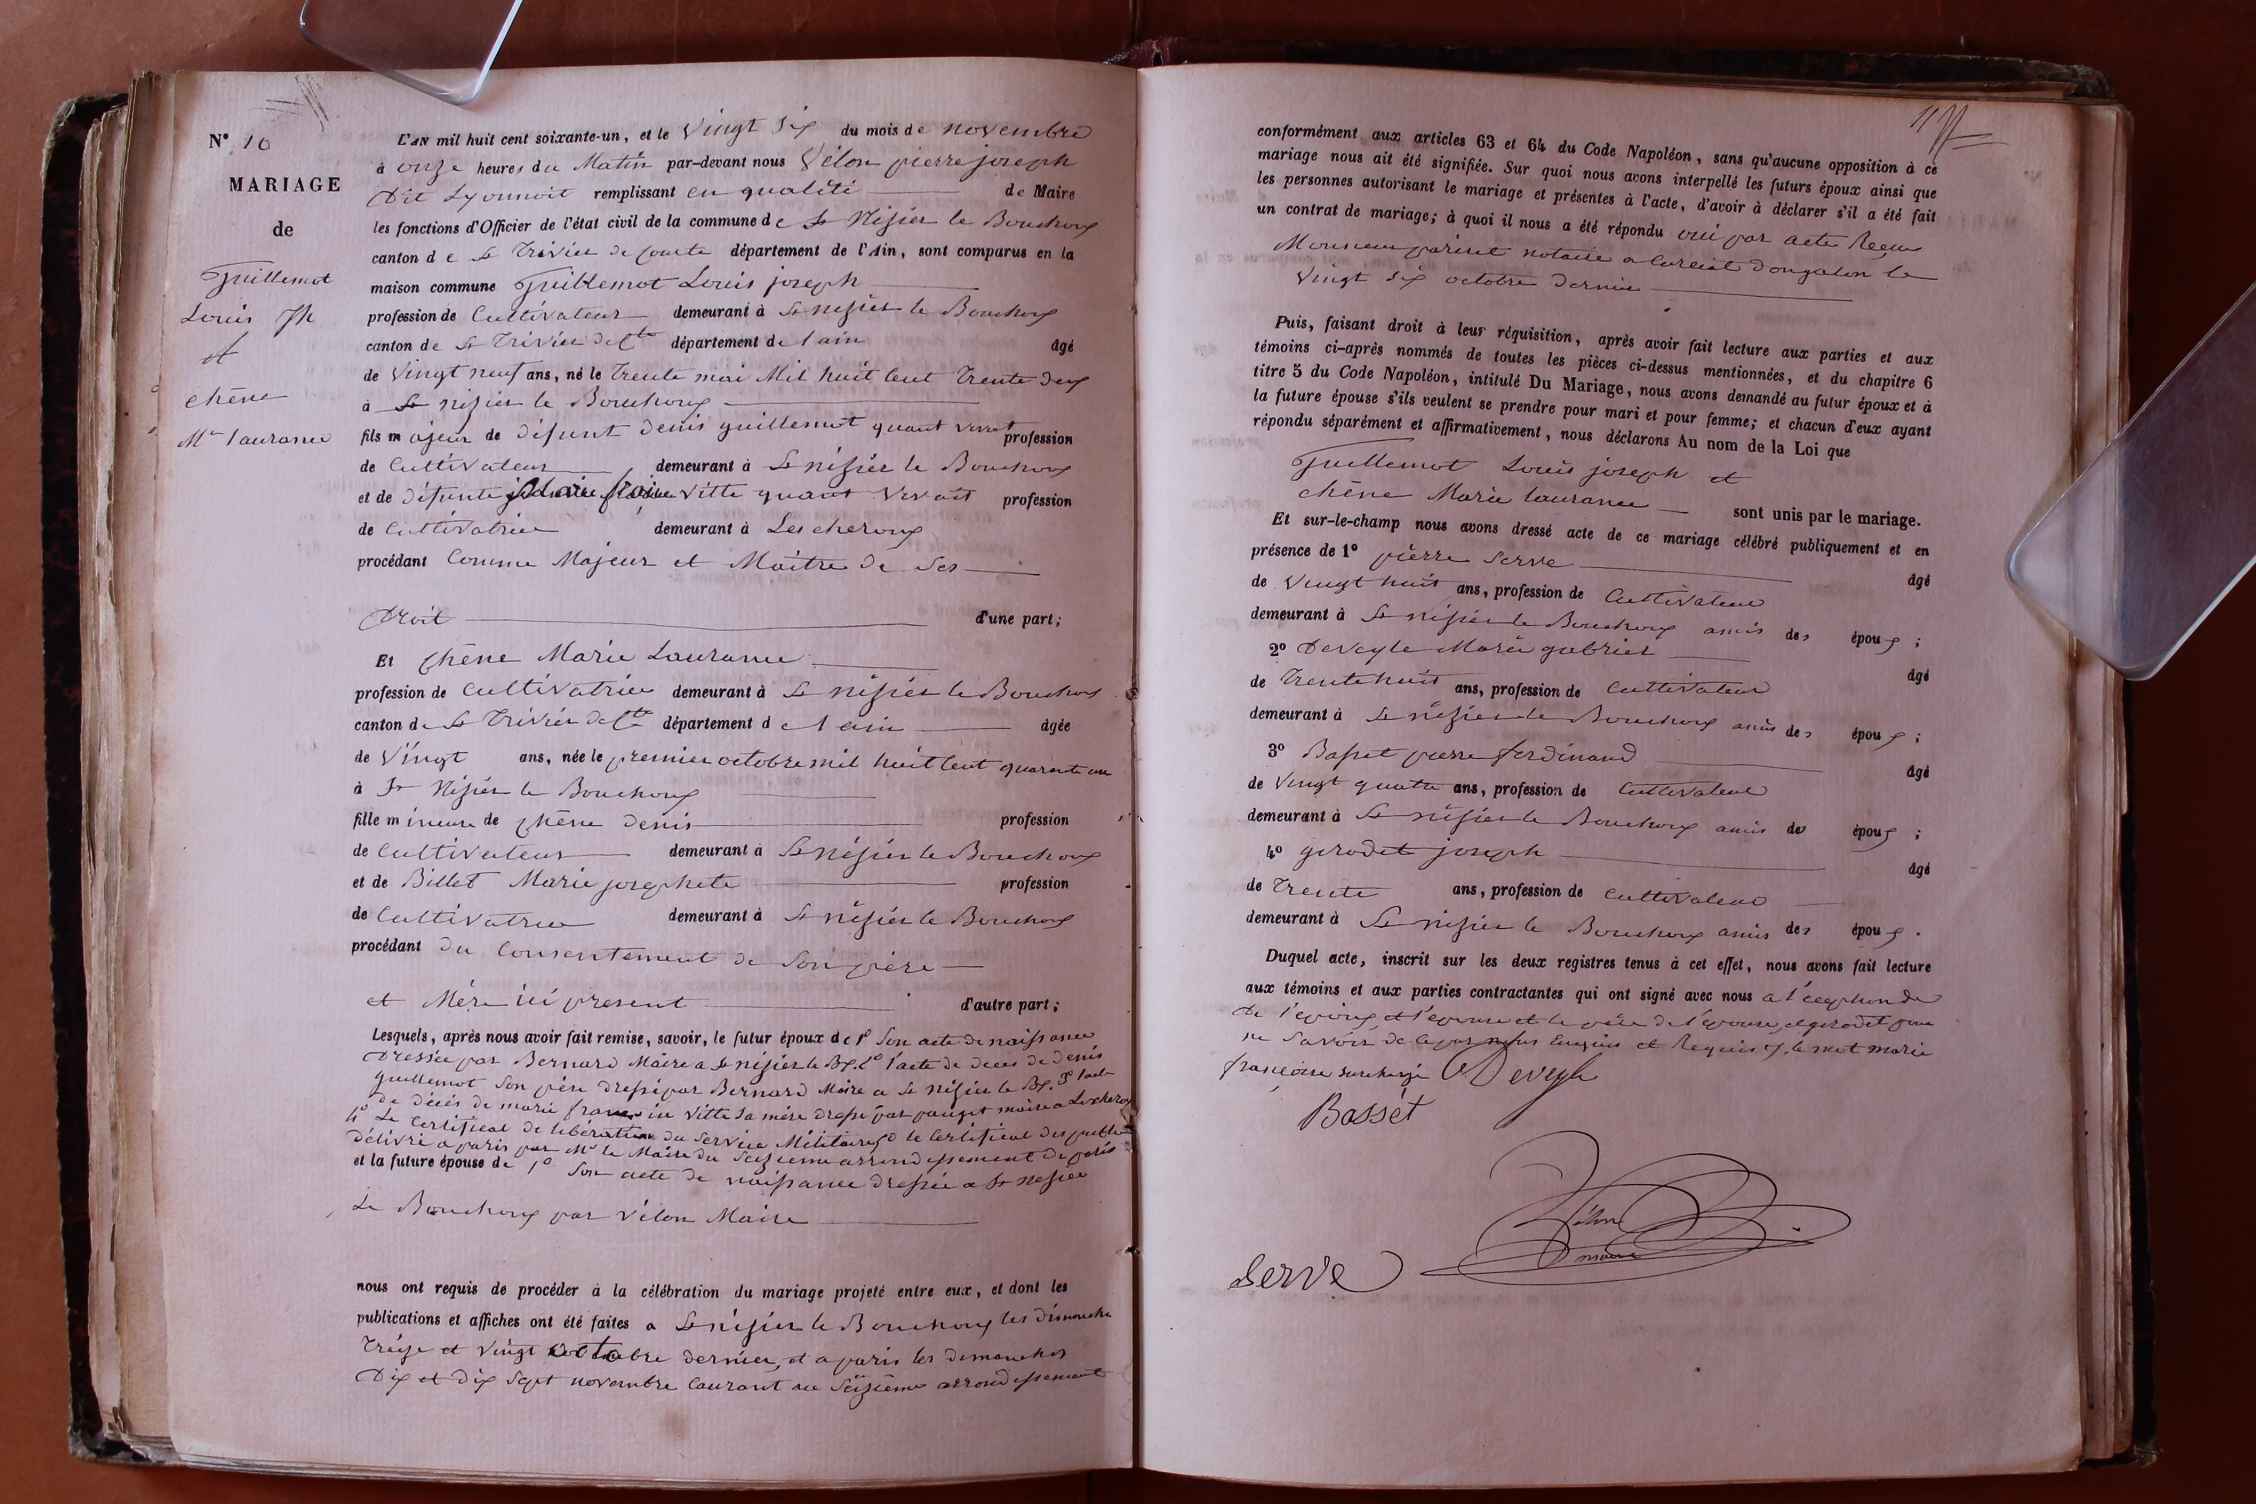 N° 10
MARIAGE
de
Guillemot
Louis Jh
et
chêne
Mie laurance
L'AN mil huit cent soixante-un, et le Vingt Six du mois de novembre
à onze heures du Matin par-devant nous Vélon pierre joseph
Dit Lyonnoit remplissant en qualité de Maire
les fonctions d'Officier de l'état civil de la commune de St Nisier le Bouchoux
canton de St Trivier de Courte département de l'Ain, sont comparus en la
maison commune Guillemot Louis joseph
profession de Cultivateur demeurant à St nisier le Bouchoux
canton de St Trivier de Cte département de l ain âgé
de Vingt neuf ans, né le trente mai Mil huit Cent Trente deux
à St nisier le Bouchoux
fils majeur de défunt denis guillemot quant vivait profession
de Cultivateur demeurant à St nisier le Bouchoux
et de défunte Marie froise Vitte quant Vivait profession
de Cultivatrice demeurant à Lescheroux
procédant Comme Majeur et Maître de Ses
Droit d'une part;
Et Chêne Marie Laurance
profession de Cultivatrice demeurant à St nisier le Bouchoux
canton de St Trivier de Cte département de l ain âgée
de Vingt ans, née le premier octobre mil huit Cent quarante un
à St Nisier le Bouchoux
fille mineure de Chêne denis profession
de Cultivateur demeurant à St nisier le Bouchoux
et de Billet Marie josephete profession
de Cultivatrice demeurant à St nisier le Bouchoux
procédant du Consentement de Son père
et Mère ici present d'autre part;
Lesquels, après nous avoir fait remise, savoir, le futur époux de 1° Son acte de naissance
Dressée par Bernard Maire a St nisier le Bx. 2° l'acte de deces de denis
guillemot Son père dressé par Bernard Maire a St nisier le Bx. 3° l'acte
de décès de marie francoise Vitte Sa mère dressé par pauget maire a Lescheroux
4° Le Certificat de libération du Service Militaire 5° le Certificat des publi
Délivré a paris par Mr le Maire du Seizieme arrondissement de paris
et la future épouse de 1° Son acte de naissance dressée a St nisier
Le Bouchoux par Vélon Maire
nous ont requis de procéder à la célébration du mariage projeté entre eux, et dont les
publications et affiches ont été faites a St nisier le Bouchoux les dimanche
Treize et Vingt octobre dernier, et a paris les dimanches
Dix et dix Sept novembre Courant au Seizième arrondissement
conformément aux articles 63 et 64 du Code Napoléon, sans qu'aucune opposition à ce
mariage nous ait été signifiée. Sur quoi nous avons interpellé les futurs époux ainsi que
les personnes autorisant le mariage et présentes à l'acte, d'avoir à déclarer s'il a été fait
un contrat de mariage; à quoi il nous a été répondu oui par acte Recu
Monsieur perret notaire a Curciat dongalon le
Vingt six octobre Dernier
Puis, faisant droit à leur réquisition, après avoir fait lecture aux parties et aux
témoins ci-après nommés de toutes les pièces ci-dessus mentionnées, et du chapitre 6
titre 5 du Code Napoléon, intitulé Du Mariage, nous avons demandé au futur époux et à
la future épouse s'ils veulent se prendre pour mari et pour femme; et chacun d'eux ayant
répondu séparément et affirmativement, nous déclarons Au nom de la Loi que
Guillemot Louis joseph et
chêne Marie laurance sont unis par le mariage.
Et sur-le-champ nous avons dressé acte de ce mariage célébré publiquement et en
présence de 1° pierre Serve âgé
de Vingt huit ans, profession de Cultivateur
demeurant à St nisier le Bouchoux amis des époux;
2° Deveyle Marie gabriel âgé
de Trente huit ans, profession de Cultivateur
demeurant à St nisier le Bouchoux amis des époux;
3° Basset pierre ferdinand âgé
de Vingt quatre ans, profession de Cultivateur
demeurant à St nisier le Bouchoux amis des époux;
4° girodet joseph âgé
de Trente ans, profession de Cultivateur
demeurant à St nisier le Bouchoux amis des époux.
Duquel acte, inscrit sur les deux registres tenus à cet effet, nous avons fait lecture
aux témoins et aux parties contractantes qui ont signé avec nous a l'exception de
De l'époux et l'épouse et le père de l'épouse, et girodet pour
ne Savoir de ce par nous Enquis et Requis le mot marie
françoise surchargé Deveyle
Basset
Vélon
maire
Serve